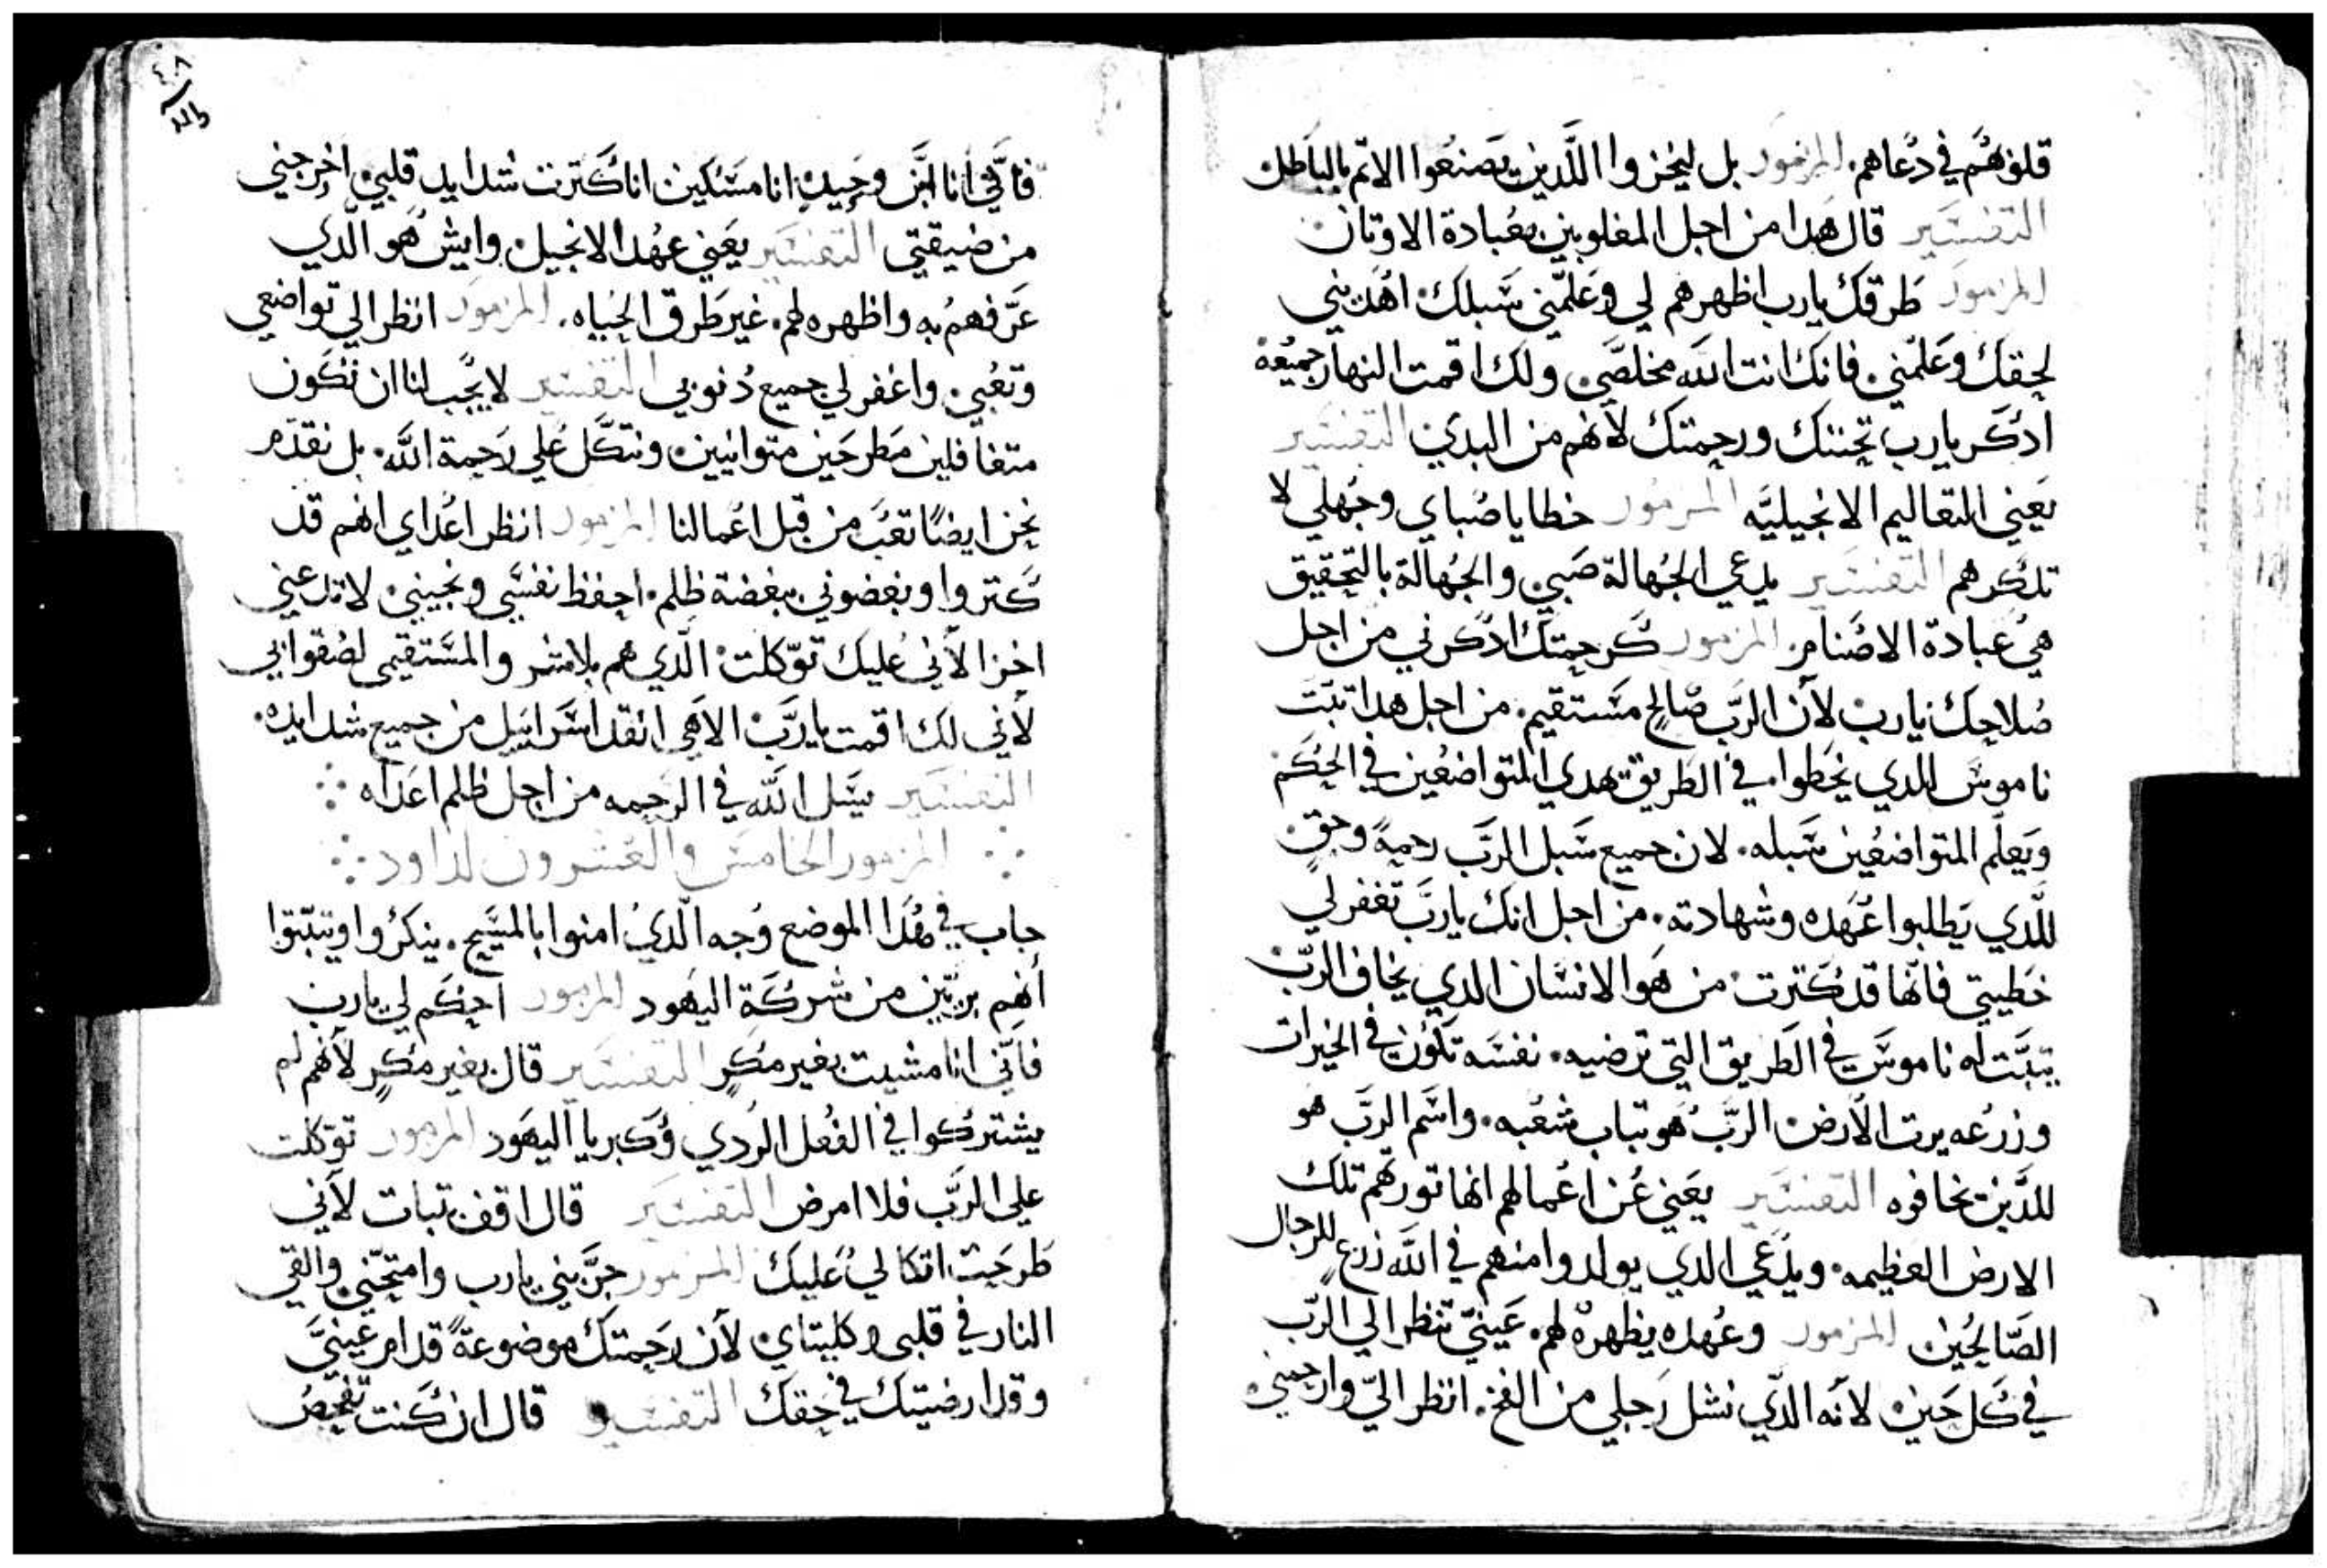 قلوبهم في دعاهم. المزمور بل ليخزوا اللدين يصنعوا الاتم بالباطل
التفسير قال هدا من اجل المغلوبين بعبادة الاوتان
المزمور طرقك يارب اظهرهم لي وعلمني سبلك اهديني
لحقك وعلمني فانك انت الله مخلصي ولك اقمت النهار جميعه
ادكر يارب تحننك ورحمتك لانهم من البدي التفسير
يعني التعاليم الانجيليه المزمور خطايا صباي وجهلي لا
تدكرهم التفسير يدعي الجهالة صبي والجهالة بالتحقيق
هي عبادة الاصنام المزمور كرحمتك ادكرني من اجل
صلاحك يارب لان الرب صالح مستقيم. من اجل هدا تبت
ناموس للدي يخطوا في الطريق يهدي المتواضعين في الحكم
ويعلم المتواضعين سبله. لان جميع سبل الرب رحمة وحق
للدي يطلبوا عهده وشهادته. من اجل انك يارب تغفر لي
خطيتي فانها قد كترت من هوا الانسان الدي يخاف الرب
يتبت له ناموس في الطريق التي ترضيه. نفسه تكون في الخيرات
وزرعه يرت الارض الرب هو تبات شعبه. واسم الرب هو
للدين يخافوه التفسير يعني عن اعمالهم انها تورتهم تلك
الارض العظيمه. ويدعي الدي يولدوا منهم في الله زرع للرجال
الصالحين المزمور وعهده يظهره لهم. عيني تنظر الي الرب
في كل حين لانه الدي نشل رجلي من الفخ. انظر الي وارحمني
٤٨
فاني انا ابن وحيد انا مسكين انا كترت شدايد قلبي اخرجني
من ضيقتي التفسير يعني عهد الانجيل وايش هو الدي
عرفهم به واظهره لهم. غير طرق الحياه. المزمور انظر الي تواضعي
وتعبي واغفر لي جميع دنوبي التفسير لا يجب لنا ان نكون
متغافلين مطرحين متوانيين ونتكل علي رحمة الله. بل نقدم
نحن ايضا تعب من قبل اعمالنا المزمور انظر اعداي انهم قد
كتروا وبغضوني بغضة ظلم. احفظ نفسي ونجيني لا تدعني
اخزا لاني عليك توكلت الدي هم بلا شر والمستقيمي لصقوا بي
لاني لك اقمت يارب الاهي انقد اسراييل من جميع شدايده.
التفسير يسل الله في الرحمه من اجل ظلم اعداه
المزمور الخامس والعشرون لداود
جاب في هدا الموضع وجه الدي امنوا بالمسيح. ينكروا ويتبتوا
انهم بريين من شركة اليهود المزمور احكم لي يارب
فاني انا مشيت بغير مكر التفسير قال بغير مكر لانهم لم
يشتركوا في الفعل الردي وكبريا اليهود المزمور توكلت
علي الرب فلا امرض التفسير قال اقف بتبات لاني
طرحت اتكالي عليك المزمور جربني يارب وامتحني والقي
النار في قلبي وكليتاي لان رحمتك موضوعة قدام عيني
وقد ارضيتك في حقك التفسير قال ان كنت تفحص